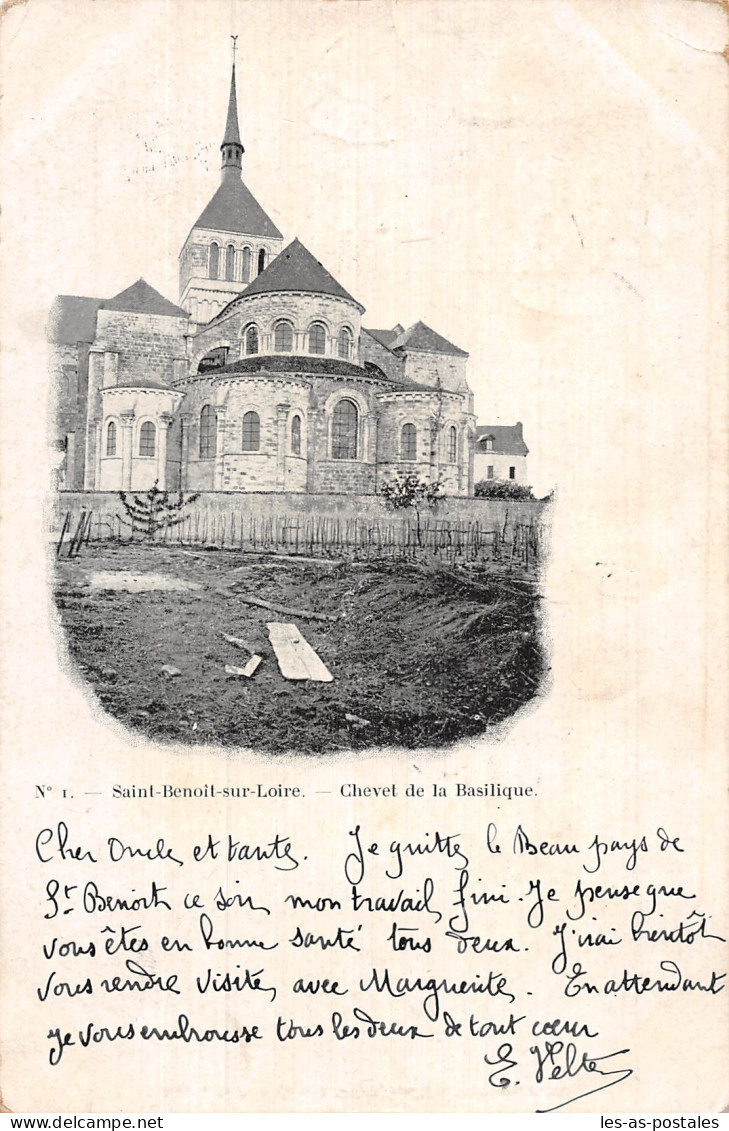 N° 1. — Saint-Benoît-sur-Loire. — Chevet de la Basilique.
Cher Oncle et tante. Je quitte le Beau pays de
St Benoit ce soir mon travail fini. Je pense que
vous êtes en bonne santé tous deux. J'irai bientôt
vous rendre visite, avec Marguerite. En attendant
je vous embrousse tous les deux de tout cœur
E. Velte
les-as-postales